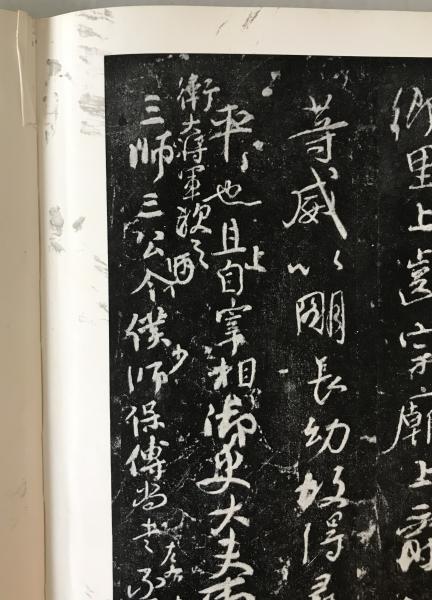 鄉里上齒宗廟上爵
等威以明長幼故得
平也且上自宰相御史大夫兩
衛大將軍次之
三師三公令僕少師保傅尚書左右丞